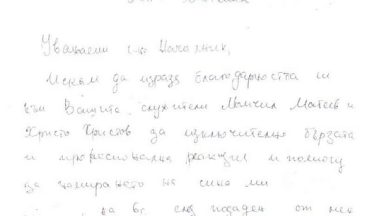 Уважаеми г-н Началник,
Искам да изразя благодарността си
към Вашите служители Момчил Матеев и
Христо Христов за изключително бързата
и професионална реакция и помощ
за намирането на сина ми
на 6г след подаден от мен